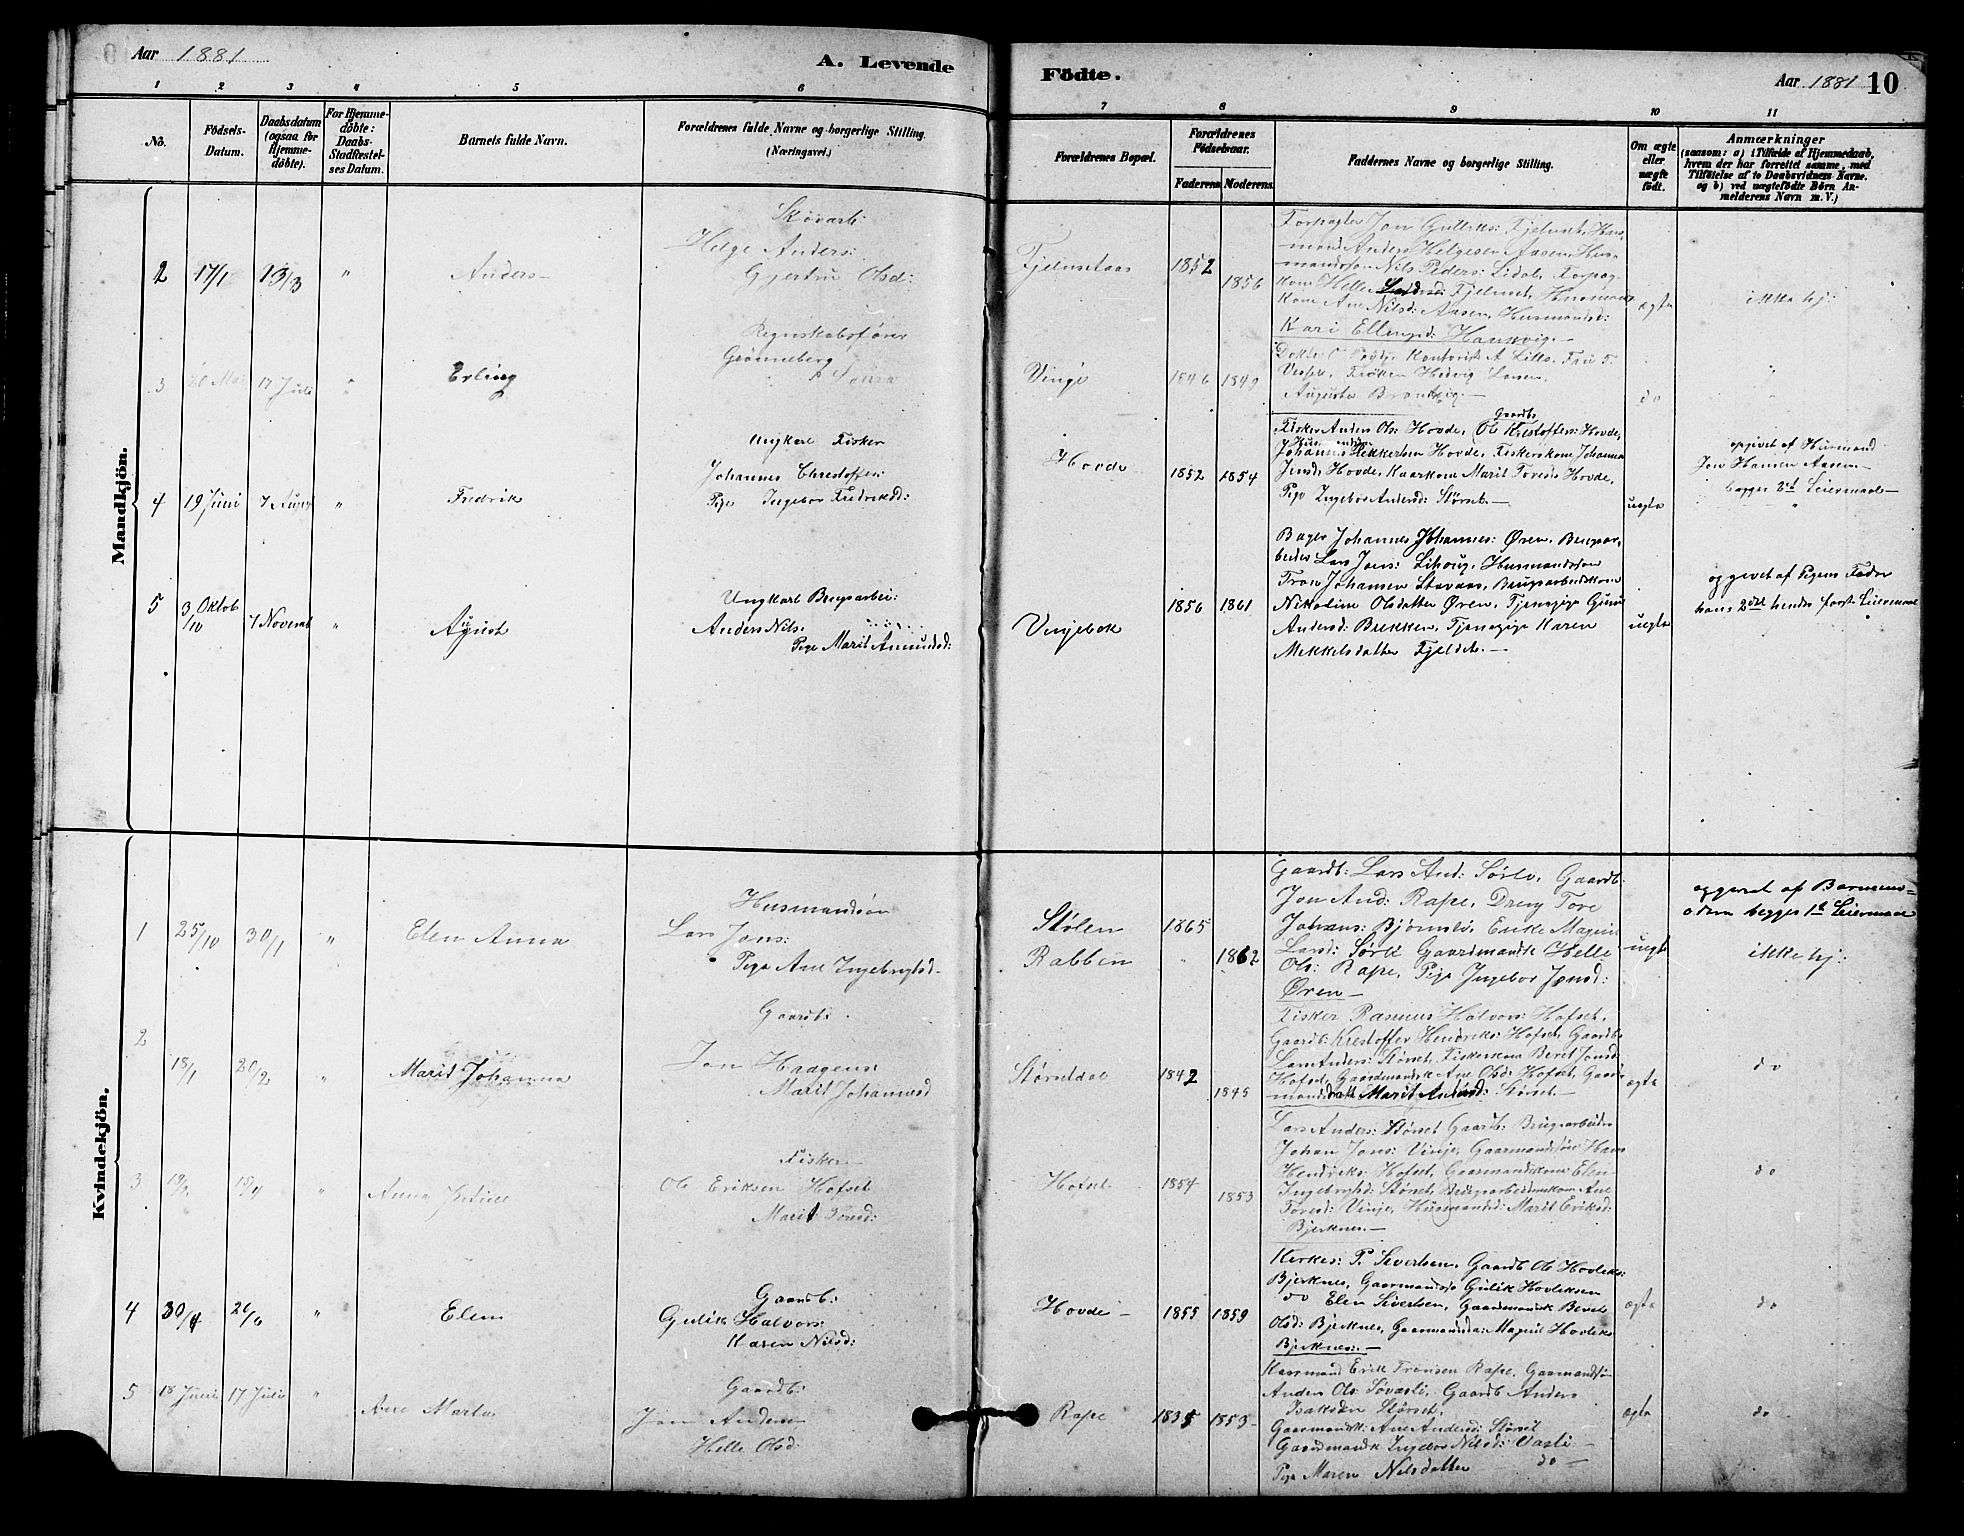 Aar 1881
A. Levende
Födte.
Aar 1881 10
1 2 3 4 5 6 7 8 9 10 11
No.
Födsels-
Datum.
Daabsdatum
(ogsaa for
Hjemme-
döbte).
For Hjemme-
döbte:
Daabs-
Stadfestel-
ses Datum.
Barnets fulde Navn.
Forældrenes fulde Navne og borgerlige Stilling.
(Næringsvei.)
Forældrenes Bopæl.
Forældrenes
Födselsaar.
Faderens
Moderens
Faddernes Navne og borgerlige Stilling.
Om ægte
eller
uægte
födt.
Anmærkninger
(saasom: a) i Tilfælde af Hjemmedaab,
hvem der har forrettet samme, med
Tilföielse af to Daabsvidners Navne.
og b) ved uægtefödte Börn An-
melderens Navn m. V.)
Mandkjön.
2 17/1 13/3 "
Anders
Helge Anders:
Gjertru Olsd:
1852
1856
Forpagter Jon Gulliks: Fjelnset, Hus-
mand Anders Helgesen Aasen, Hus-
mandssøn Nils Peders: Lidal, Forpag-
kone Helle Fjelnset, Husmand
kone Ane Nilsd: Aasen, Husmandsd:
Kari Ellingsd:
ægte
ikke hj:
3 17 Juli "
Erling
Regnskabsfører
Grønneberg
Vinje
1846 1849
Frøken Hedvig Larsen,
Augusta
do
4 19 Juni 7 August "
Fredrik
Ungkarl Fisker
Johannes Chrestoffer:
Pige Ingebor Fredriksd:
Hovde
1852 1854
Fisker Anders Ols: Hovde, Gaardb Ol Krestoffers: Hovde,
Johannes Hovde, Fiskerkone Johanna
Jensd: Hovde, Kaarkone Marit Toresd: Hovde,
Pige Ingebor Andersd: Størset.
uegte
opgivet af Husmand
Jon Hansen Aasen
begges 2et Leiermaal
"
5 3/10 Oktob 7 Novemb "
August
Ungkarl Brugsarbei:
Anders Nils.
Pige Marit Amundsd:
Vinjebok
1856 1861
Bager Johannes Johannes: Øren, Brugsar-
beider Lars Jons: Husmandssøn
Tron Johansen Stavaas, Brugsarbeiderkone
Nikoline Olsdatter Øren, Tjenepige Guru
Andersd: Brekken, Tjenepige Karen
Mekkelsdatter Fjeldet.
uegte
opgevet af Pigens Fader
hans 2det hendes første Leiermaal
Kvindekjön.
1 25/10 30/1 "
Elen Anna
Husmandsøn
Lars Jons:
Pige Ane Ingebrigtsd.
Stølen
Rabben
1865
" 1862
Gaardb: Lars And: Sørlv, Gaardb:
Jon And: Rape, Dreng Tore
Johans: Enke Magnil
Larsd: Sørli Gaardmandk Helle
Ols: Rape, Pige Ingebor Jonsd:
Øren
uegte
opgevet af Barnemo-
deren begges 1st Leiermaal
ikke hj:
2 18/1 20/2 "
Marit Johanna
Gaardb:
Jon Haagens:
Marit Johannesd
Størseldal
1842
1845
Fisker Rasmus Halvors: Hofset,
Gaardb: Krestoffer Hendriks: Hofset, Gaardb
Lars Anders: Størset, Fiskerkone Beret Jonsd:
Hofset, Gaardmandsk Ane Olsd: Hofset, Gaard-
mandsdatt Marit Andersd: Størset
ægte
do
3 19/4 "
Anna
Fisker
Ol Eriksen Hofset
Marit Jonsd:
Hofset
1854
1853
Lars Anders: Størset Gaardb: Brugsarbeider
Johan Jons: Vinje, Gaarmandsøn Hans
Hendriks: Hofset, Gaarmandskone Elen
Ingebrigtsd: Størset, Brugsarbeiderkone Ane
Toresd: Vinje, Husmandsd: Marit Eriksd:
Bjerknes.
do
4 30/4 26/6 "
Elen
Gaardb:
Gulik Halvors:
Karen Nilsd:
Hovde
1855 1859
Kirkes: P. Sivertsen, Gaardb Ol Hovleks:
Bjerknes, Gaarmandsø Gulik Hovleksen
do Elen Sivertsen, Gaardmandsk Beret
Olsd: Bjerknes, Gaarmandsda: Magnil Hovleks
Bjerknes.
ægte
do
5 18 Juni 17 Juli "
Ane Marta
Gaardb:
Jon Andersen
Helle Olsd.
Rape
1835 1853
Kaarmand Erik Tronsen Rape, Gaarmandsøn
Anders Ols: Søvasli, Gaardb Anders
Isaksen Størset,
Gaarmandsk: Ane Andersd: Størset
Gaardmandk Ingebor Nilsd: Vasli
Pige Maren Nilsdatter do
ægte
do